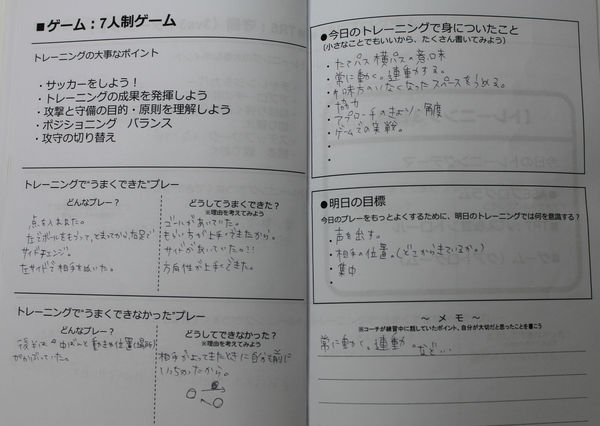 ■ゲーム：7人制ゲーム
トレーニングの大事なポイント
・サッカーをしよう！
・トレーニングの成果を発揮しよう
・攻撃と守備の目的・原則を理解しよう
・ポジショニング　バランス
・攻守の切り替え
トレーニングで“うまくできた”プレー
どんなプレー？
点を入れれた。
左でボールをもらって、止まってから右足で
サイドチェンジ。
左サイドで相手をぬいた。
どうしてうまくできた？
※理由を考えてみよう
ゴールがあいていた。
もらい方が上手くできたから。
サイドがあいていた!!
方向性が上手くできた。
トレーニングで“うまくできなかった”プレー
どんなプレー？
後半は、中ばんと動きや位置(場所)
がかぶっていた。
どうしてできなかった？
※理由を考えてみよう
相手がよってきたときに自分も前に
いっちゃったから。
●今日のトレーニングで身についたこと
(小さなことでもいいから、たくさん書いてみよう)
・たてパス 横パスの意味
・常に動く。連動する。
・味方のいなくなったスペースをうめる。
・協力
・アプローチのきょり・角度
・ゲームでの実戦。
●明日の目標
今日のプレーをもっとよくするために、明日のトレーニングでは何を意識する？
・声を出す。
・相手の位置。(どこからきているか。)
・集中
～ メモ ～
※コーチが練習中に話していたポイント、自分が大切だと思ったことを書こう
常に動く。連動。など…